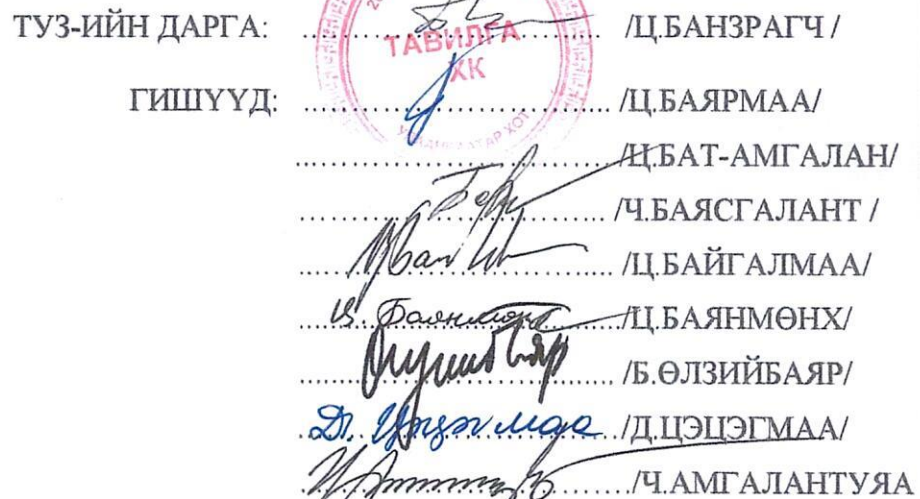 ТУЗ-ИЙН ДАРГА: /Ц.БАНЗРАГЧ /
ТАВИЛГА
ХК
ГИШҮҮД: /Ц.БАЯРМАА/
/Ц.БАТ-АМГАЛАН/
/Ч.БАЯСГАЛАНТ /
/Ц.БАЙГАЛМАА/
Ц. Баянмөнх /Ц.БАЯНМӨНХ/
/Б.ӨЛЗИЙБАЯР/
Д. Цэцэгмаа /Д.ЦЭЦЭГМАА/
/Ч.АМГАЛАНТУЯА